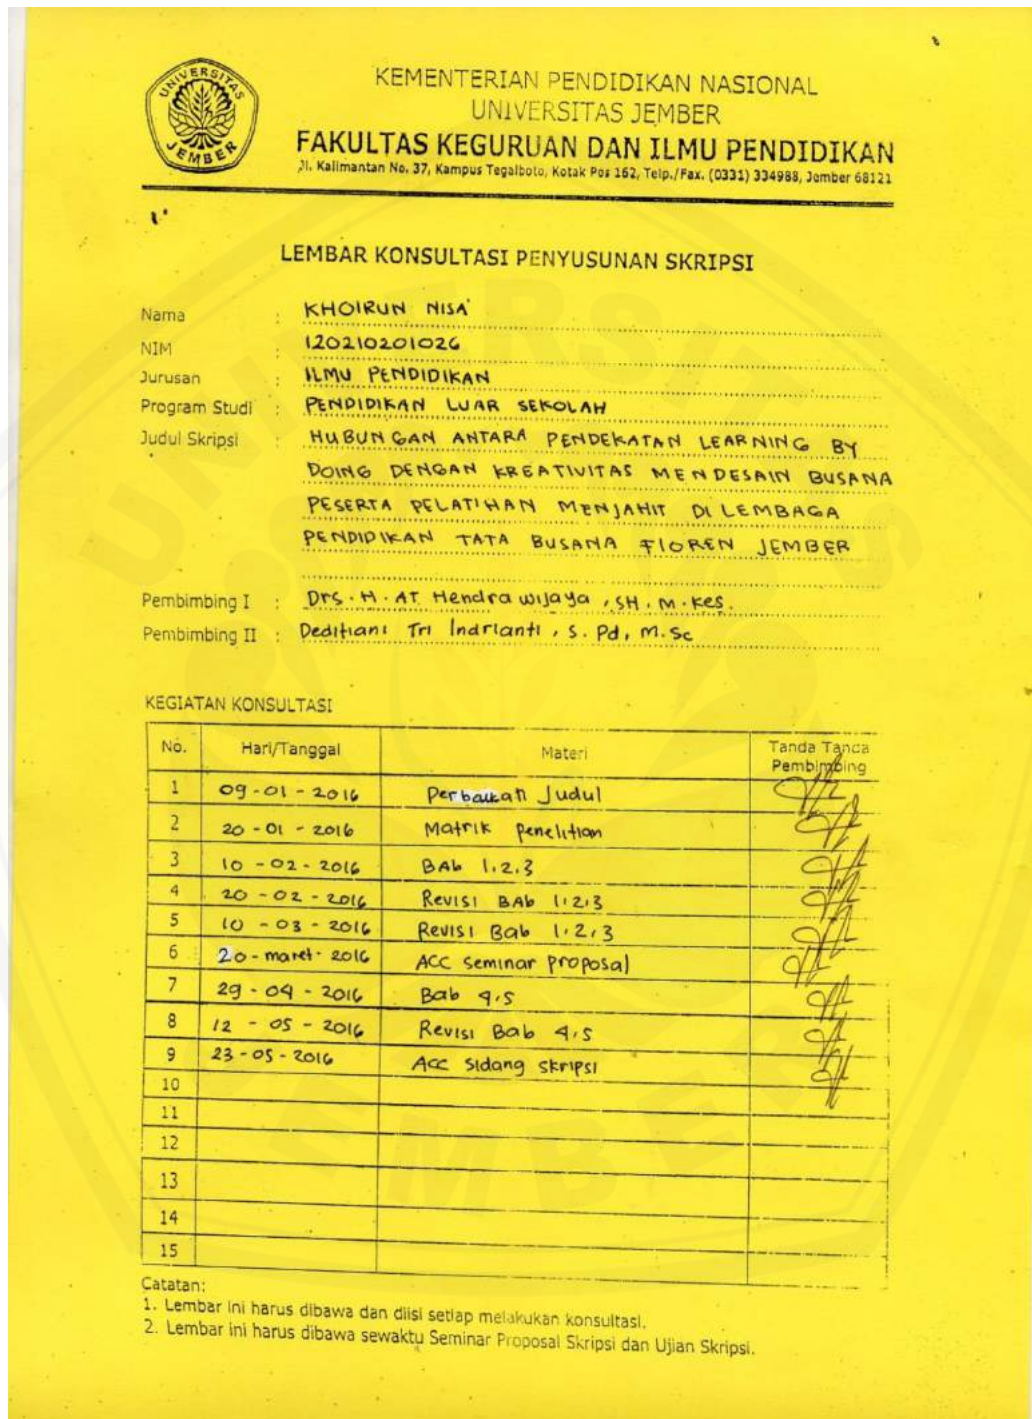 UNIVERSITAS
JEMBER
KEMENTERIAN PENDIDIKAN NASIONAL
UNIVERSITAS JEMBER
FAKULTAS KEGURUAN DAN ILMU PENDIDIKAN
Jl. Kalimantan No. 37, Kampus Tegalboto, Kotak Pos 162, Telp./Fax. (0331) 334988, Jember 68121
LEMBAR KONSULTASI PENYUSUNAN SKRIPSI
Nama : KHOIRUN NISA'
NIM : 120210201026
Jurusan : ILMU PENDIDIKAN
Program Studi : PENDIDIKAN LUAR SEKOLAH
Judul Skripsi : HUBUNGAN ANTARA PENDEKATAN LEARNING BY
DOING DENGAN KREATIVITAS MENDESAIN BUSANA
PESERTA PELATIHAN MENJAHIT DI LEMBAGA
PENDIDIKAN TATA BUSANA FLOREN JEMBER
Pembimbing I : Drs. H. AT Hendra wijaya, SH. M. Kes.
Pembimbing II : Deditiani Tri Indrianti, S. Pd, M. Sc
KEGIATAN KONSULTASI
No. Hari/Tanggal Materi Tanda Tanda Pembimbing
1 09-01-2016 Perbaikan Judul
2 20-01-2016 Matrik Penelitian
3 10-02-2016 BAb 1.2.3
4 20-02-2016 Revisi BAb 1.2.3
5 10-03-2016 Revisi Bab 1.2.3
6 20-maret-2016 ACC seminar proposal
7 29-04-2016 Bab 4.5
8 12-05-2016 Revisi Bab 4.5
9 23-05-2016 ACC Sidang skripsi
10
11
12
13
14
15
Catatan:
1. Lembar ini harus dibawa dan diisi setiap melakukan konsultasi.
2. Lembar ini harus dibawa sewaktu Seminar Proposal Skripsi dan Ujian Skripsi.